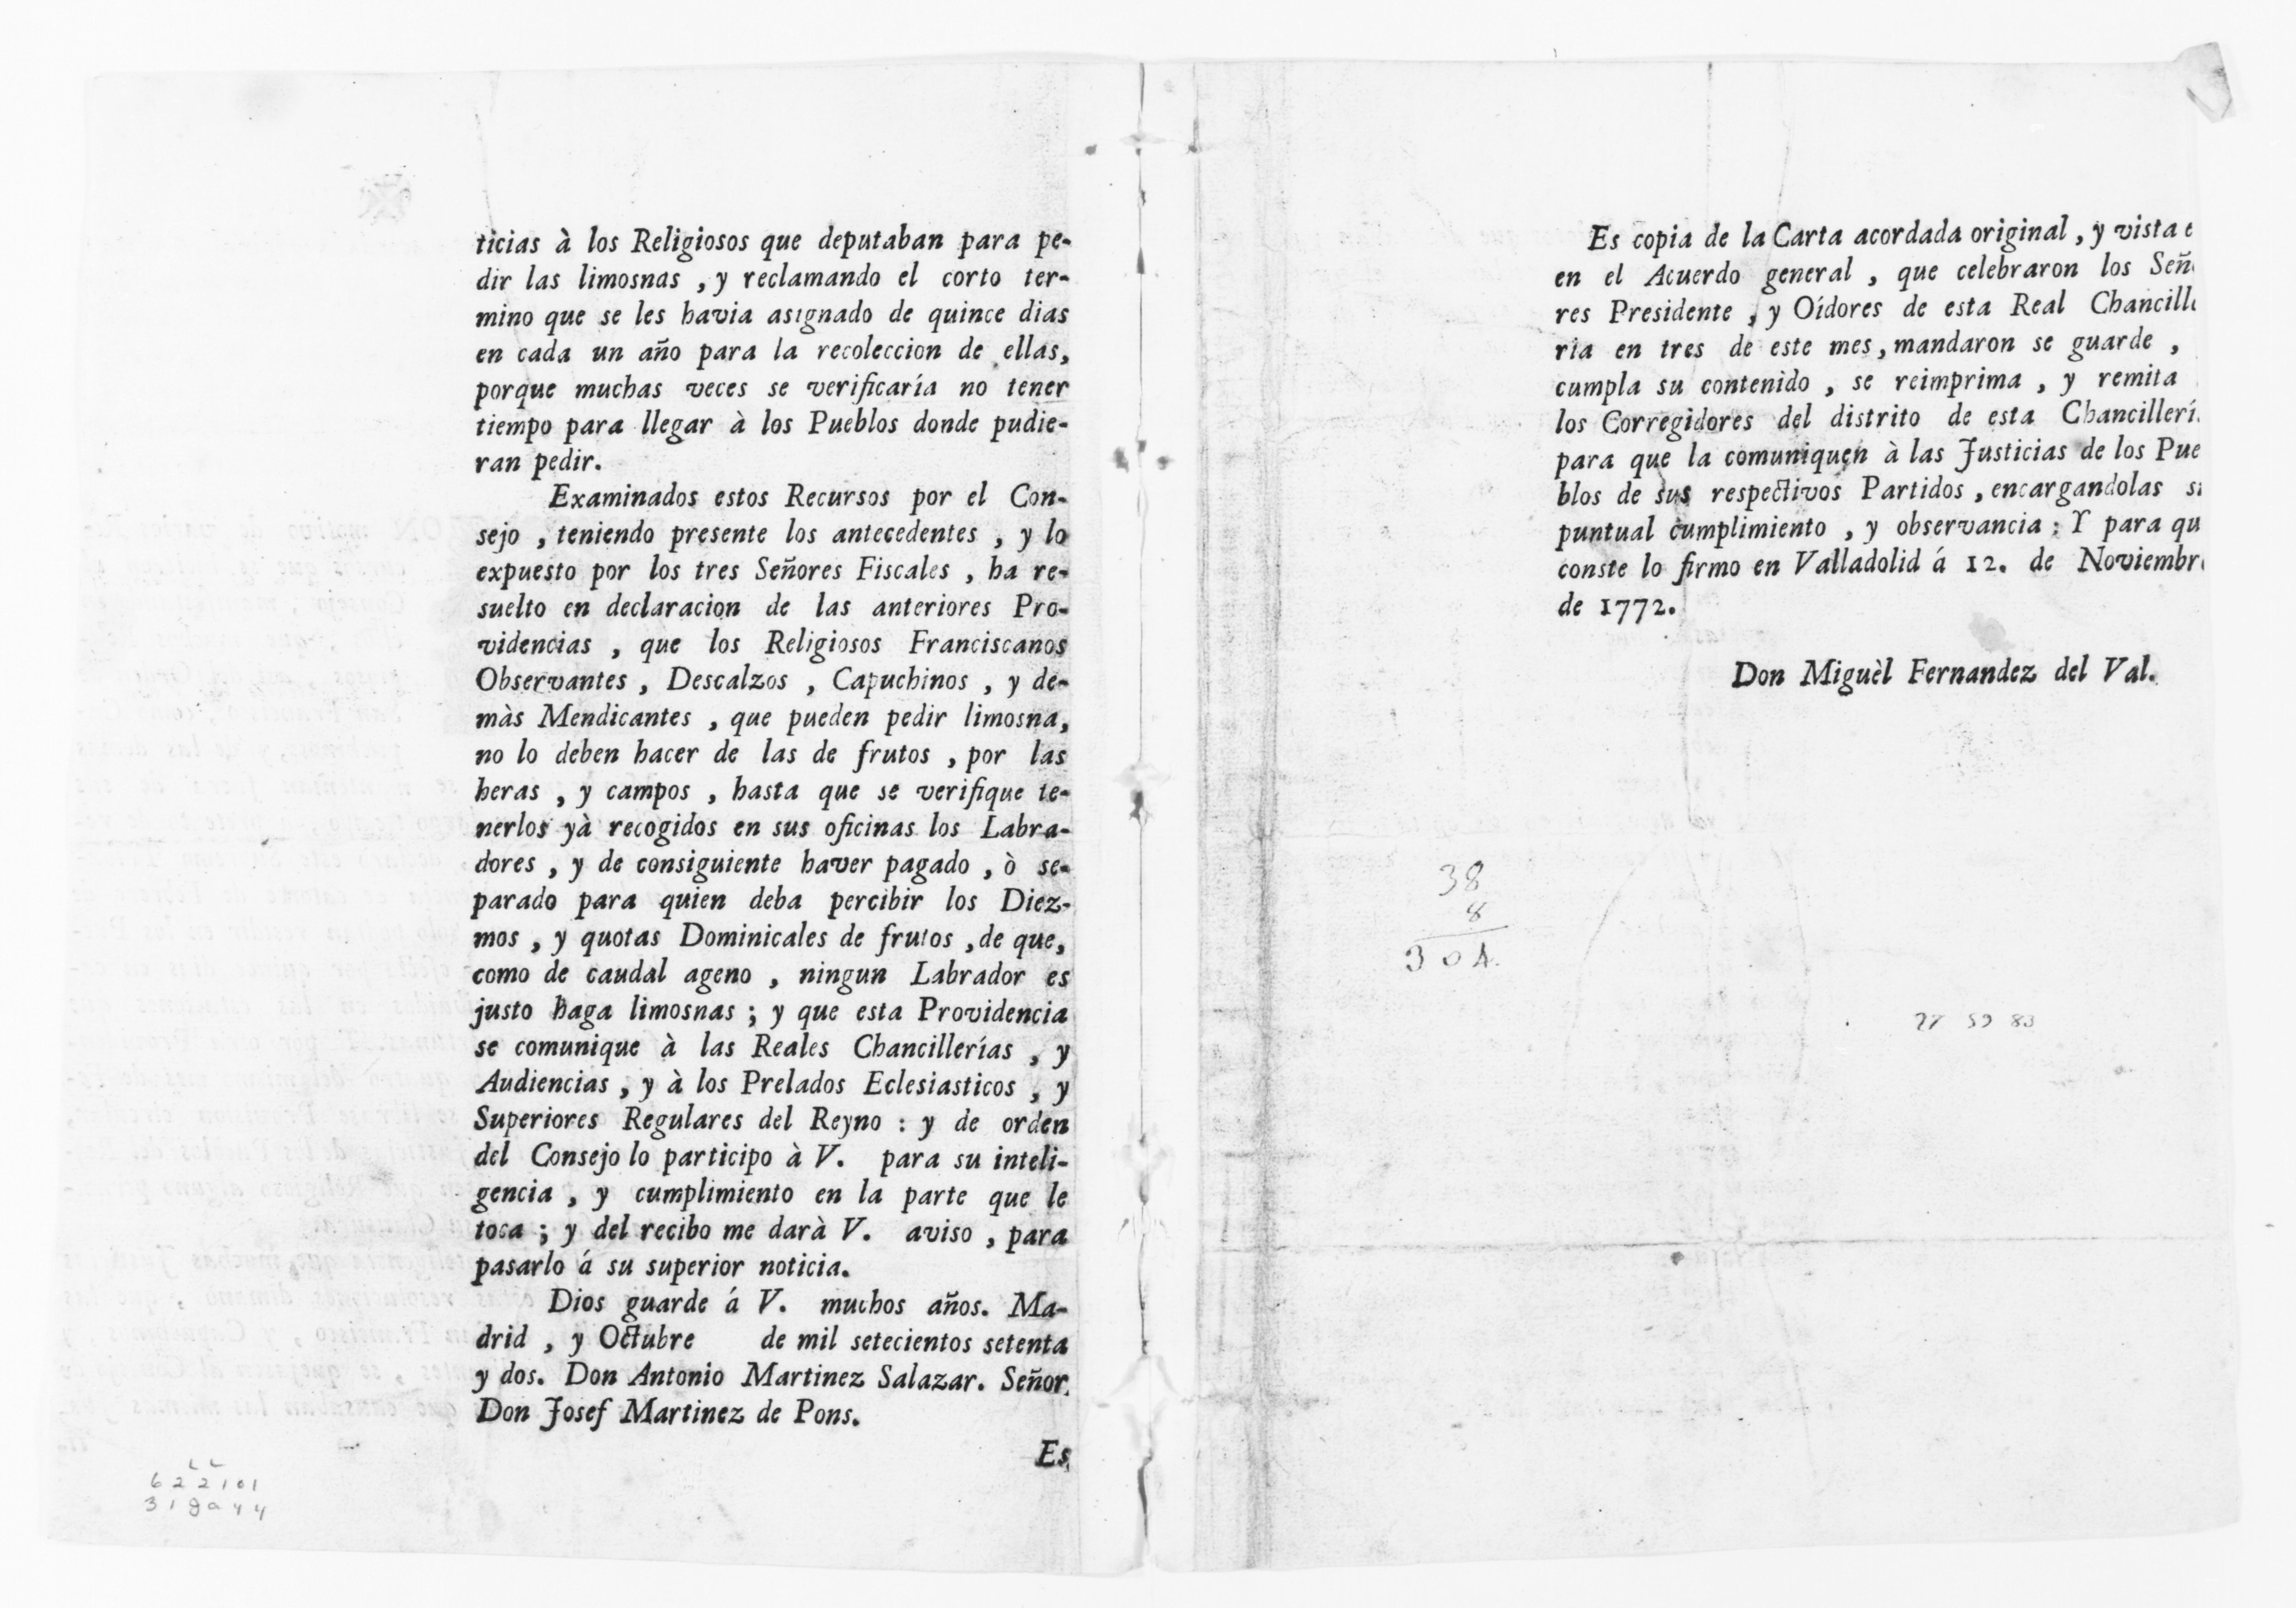 ticias à los Religiosos que deputaban para pe-
dir las limosnas , y reclamando el corto ter-
mino que se les havia asignado de quince dias
en cada un año para la recoleccion de ellas,
porque muchas veces se verificaría no tener
tiempo para llegar à los Pueblos donde pudie-
ran pedir.
Examinados estos Recursos por el Con-
sejo , teniendo presente los antecedentes , y lo
expuesto por los tres Señores Fiscales , ha re-
suelto en declaracion de las anteriores Pro-
videncias , que los Religiosos Franciscanos
Observantes , Descalzos , Capuchinos , y de-
màs Mendicantes , que pueden pedir limosna,
no lo deben hacer de las de frutos , por las
heras , y campos , hasta que se verifique te-
nerlos yà recogidos en sus oficinas los Labra-
dores , y de consiguiente haver pagado , ò se-
parado para quien deba percibir los Diez-
mos , y quotas Dominicales de frutos , de que,
como de caudal ageno , ningun Labrador es
justo haga limosnas ; y que esta Providencia
se comunique à las Reales Chancillerías , y
Audiencias , y à los Prelados Eclesiasticos , y
Superiores Regulares del Reyno : y de orden
del Consejo lo participo à V. para su inteli-
gencia , y cumplimiento en la parte que le
toca ; y del recibo me darà V. aviso , para
pasarlo á su superior noticia.
Dios guarde á V. muchos años. Ma-
drid , y Octubre de mil setecientos setenta
y dos. Don Antonio Martinez Salazar. Señor.
Don Josef Martinez de Pons.
Es
622101
Es copia de la Carta acordada original , y vista
en el Acuerdo general , que celebraron los Señ
res Presidente , y Oídores de esta Real Chancill
ria en tres de este mes, mandaron se guarde ,
cumpla su contenido , se reimprima , y remita
los Corregidores del distrito de esta Chancillerí
para que la comuniquen à las Justicias de los Pue
blos de sus respectivos Partidos , encargandolas s
puntual cumplimiento , y observancia : Y para qu
conste lo firmo en Valladolid á 12. de Noviembr
de 1772.
Don Miguèl Fernandez del Val.
38
8
304.
59 83